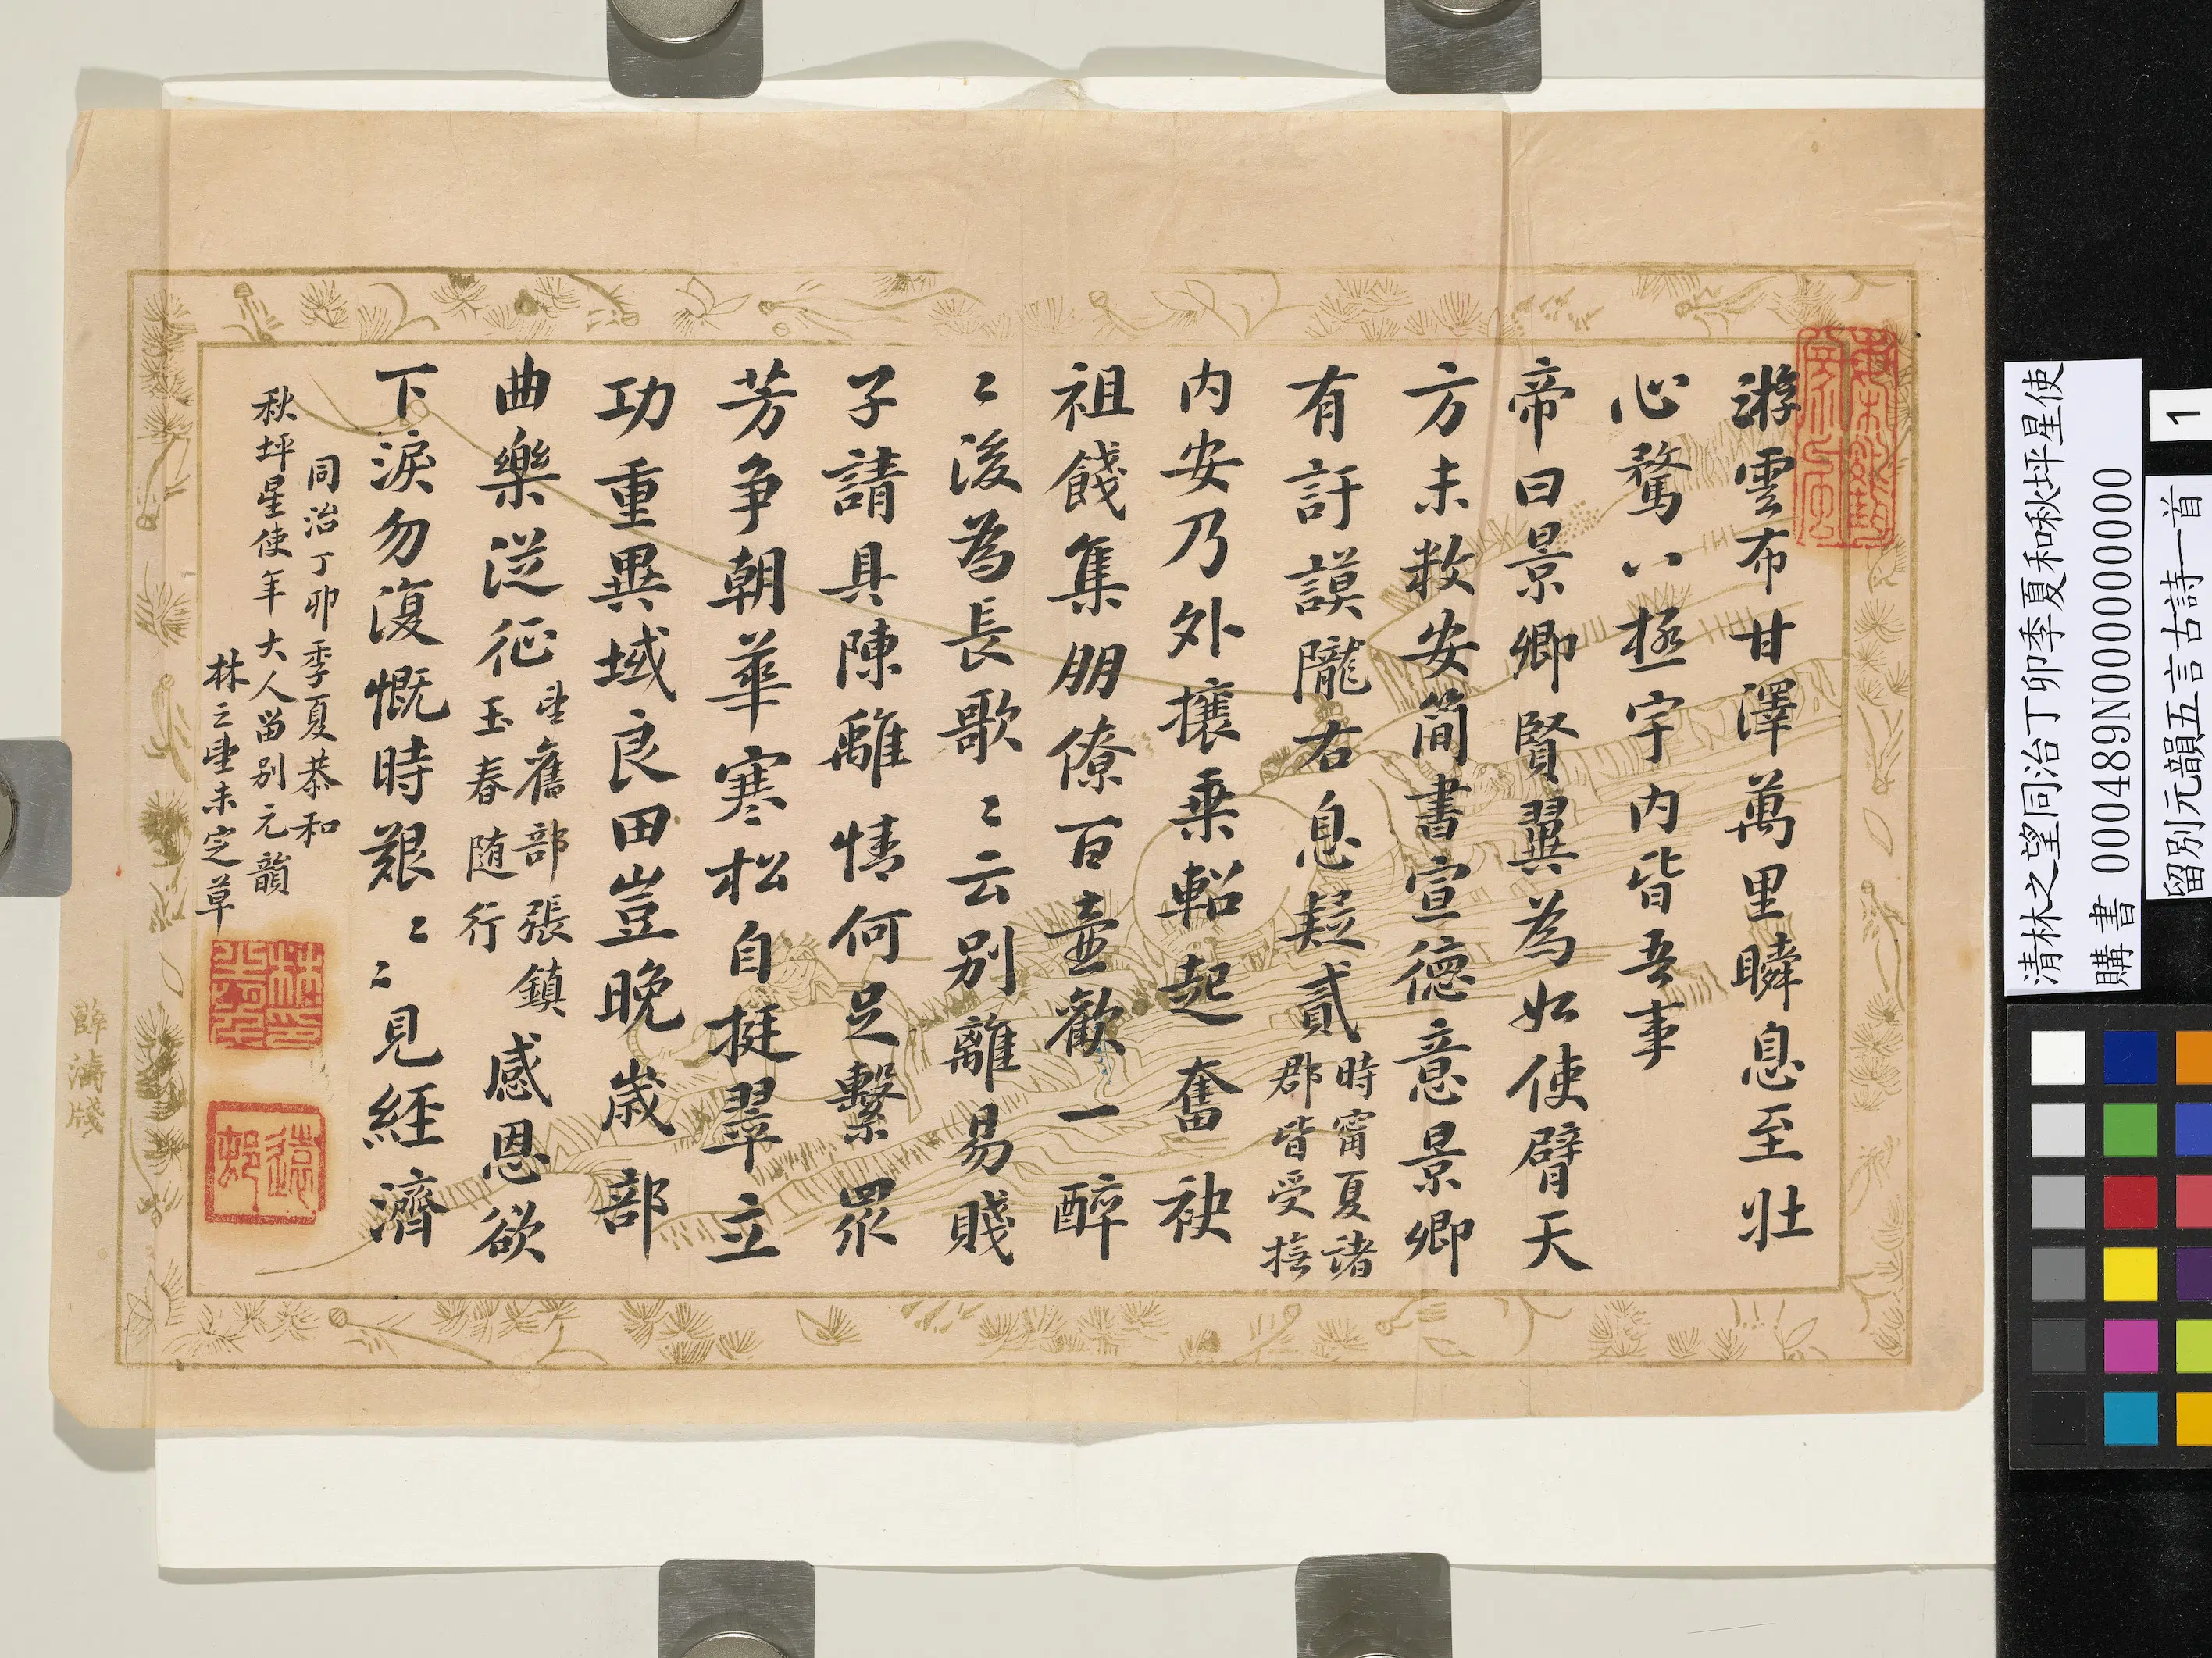 游雲布甘澤萬里瞬息至壯
心騖八極宇內皆吾事
帝曰景卿賢翼為如使臂天
方未敉安簡書宣德意景卿
有訏謨隴右息疑貳時甯夏諸
郡皆受撫
內安乃外攘乘軺起奮袂
祖餞集朋僚百壺歡一醉
〻後為長歌〻云別離易賤
子請具陳離情何足繫眾
芳爭朝華寒松自挺翠立
功重異域良田豈晚歲部
曲樂從征望舊部張鎮
玉春随行感恩欲
下淚勿復慨時艱〻〻見經濟
同治丁卯季夏恭和
秋坪星使年大人留別元韻
林之望未定草
薛濤牋
清林之望同治丁卯季夏和秋坪星使
購書 000489N000000000
留別元韻五言古詩一首
1